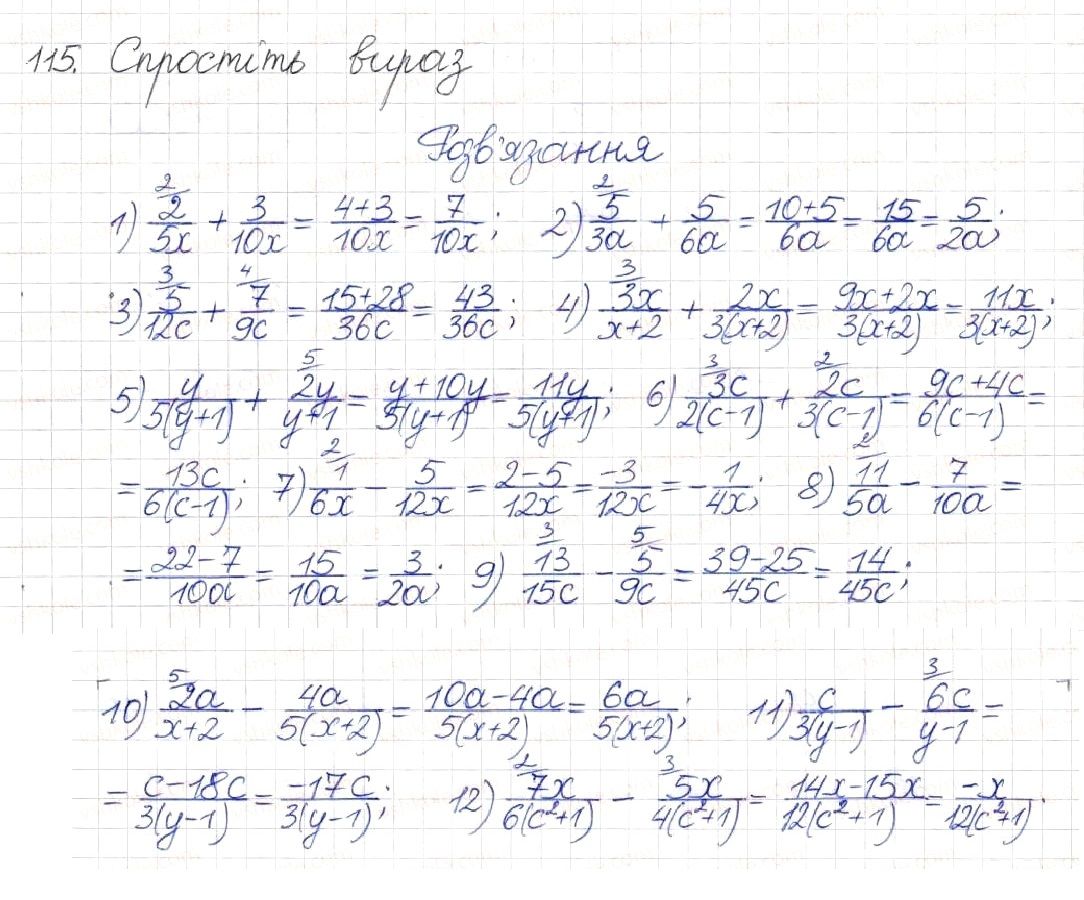 115. Спростіть вираз
Розв'язання
1) 2/5x (2) + 3/10x = 4+3/10x = 7/10x; 2) 5/3a (2) + 5/6a = 10+5/6a = 15/6a = 5/2a;
3) 5/12c (3) + 7/9c (4) = 15+28/36c = 43/36c; 4) 3x/x+2 (3) + 2x/3(x+2) = 9x+2x/3(x+2) = 11x/3(x+2);
5) y/5(y+1) + 2y/y+1 (5) = y+10y/5(y+1) = 11y/5(y+1); 6) 3c/2(c-1) (3) + 2c/3(c-1) (2) = 9c+4c/6(c-1) =
= 13c/6(c-1); 7) 1/6x (2) - 5/12x = 2-5/12x = -3/12x = - 1/4x; 8) 11/5a (2) - 7/10a =
= 22-7/10a = 15/10a = 3/2a; 9) 13/15c (3) - 5/9c (5) = 39-25/45c = 14/45c;
10) 2a/x+2 (5) - 4a/5(x+2) = 10a-4a/5(x+2) = 6a/5(x+2); 11) c/3(y-1) - 6c/y-1 (3) =
= c-18c/3(y-1) = -17c/3(y-1); 12) 7x/6(c²+1) (2) - 5x/4(c²+1) (3) = 14x-15x/12(c²+1) = -x/12(c²+1).